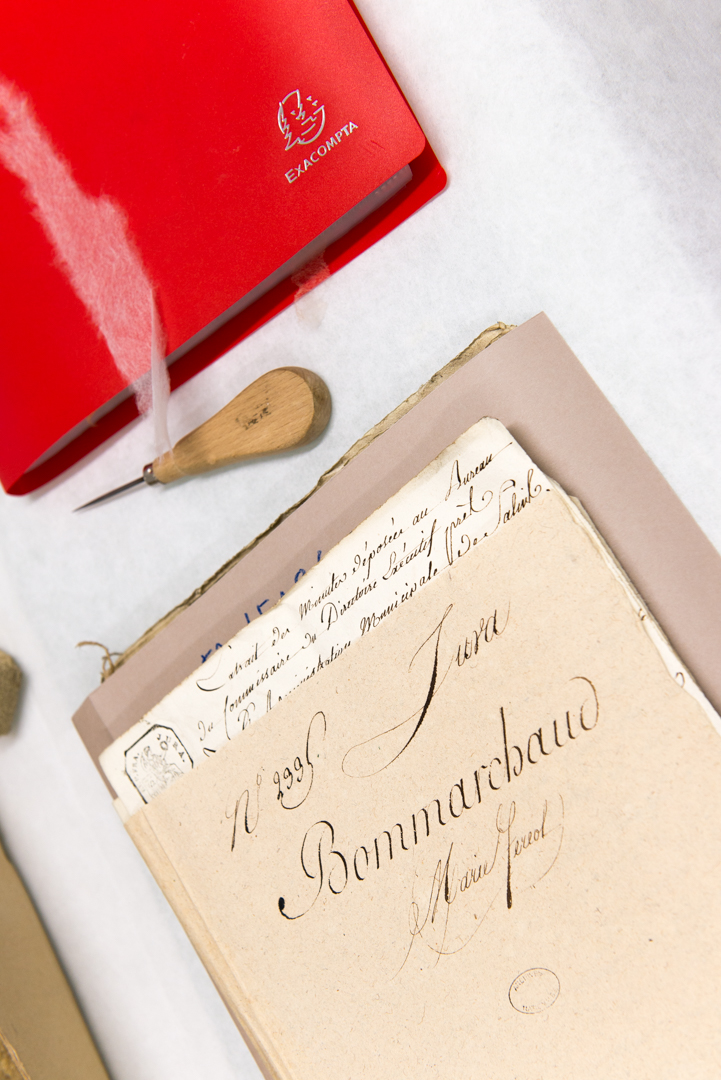 EXACOMPTA
Extrait des Minutes déposées au Bureau
du Commissaire du Directoire Exécutif près
L'Administration Municipale de Salins.
Jura
N° 2995.
Bommarchaud
Marie